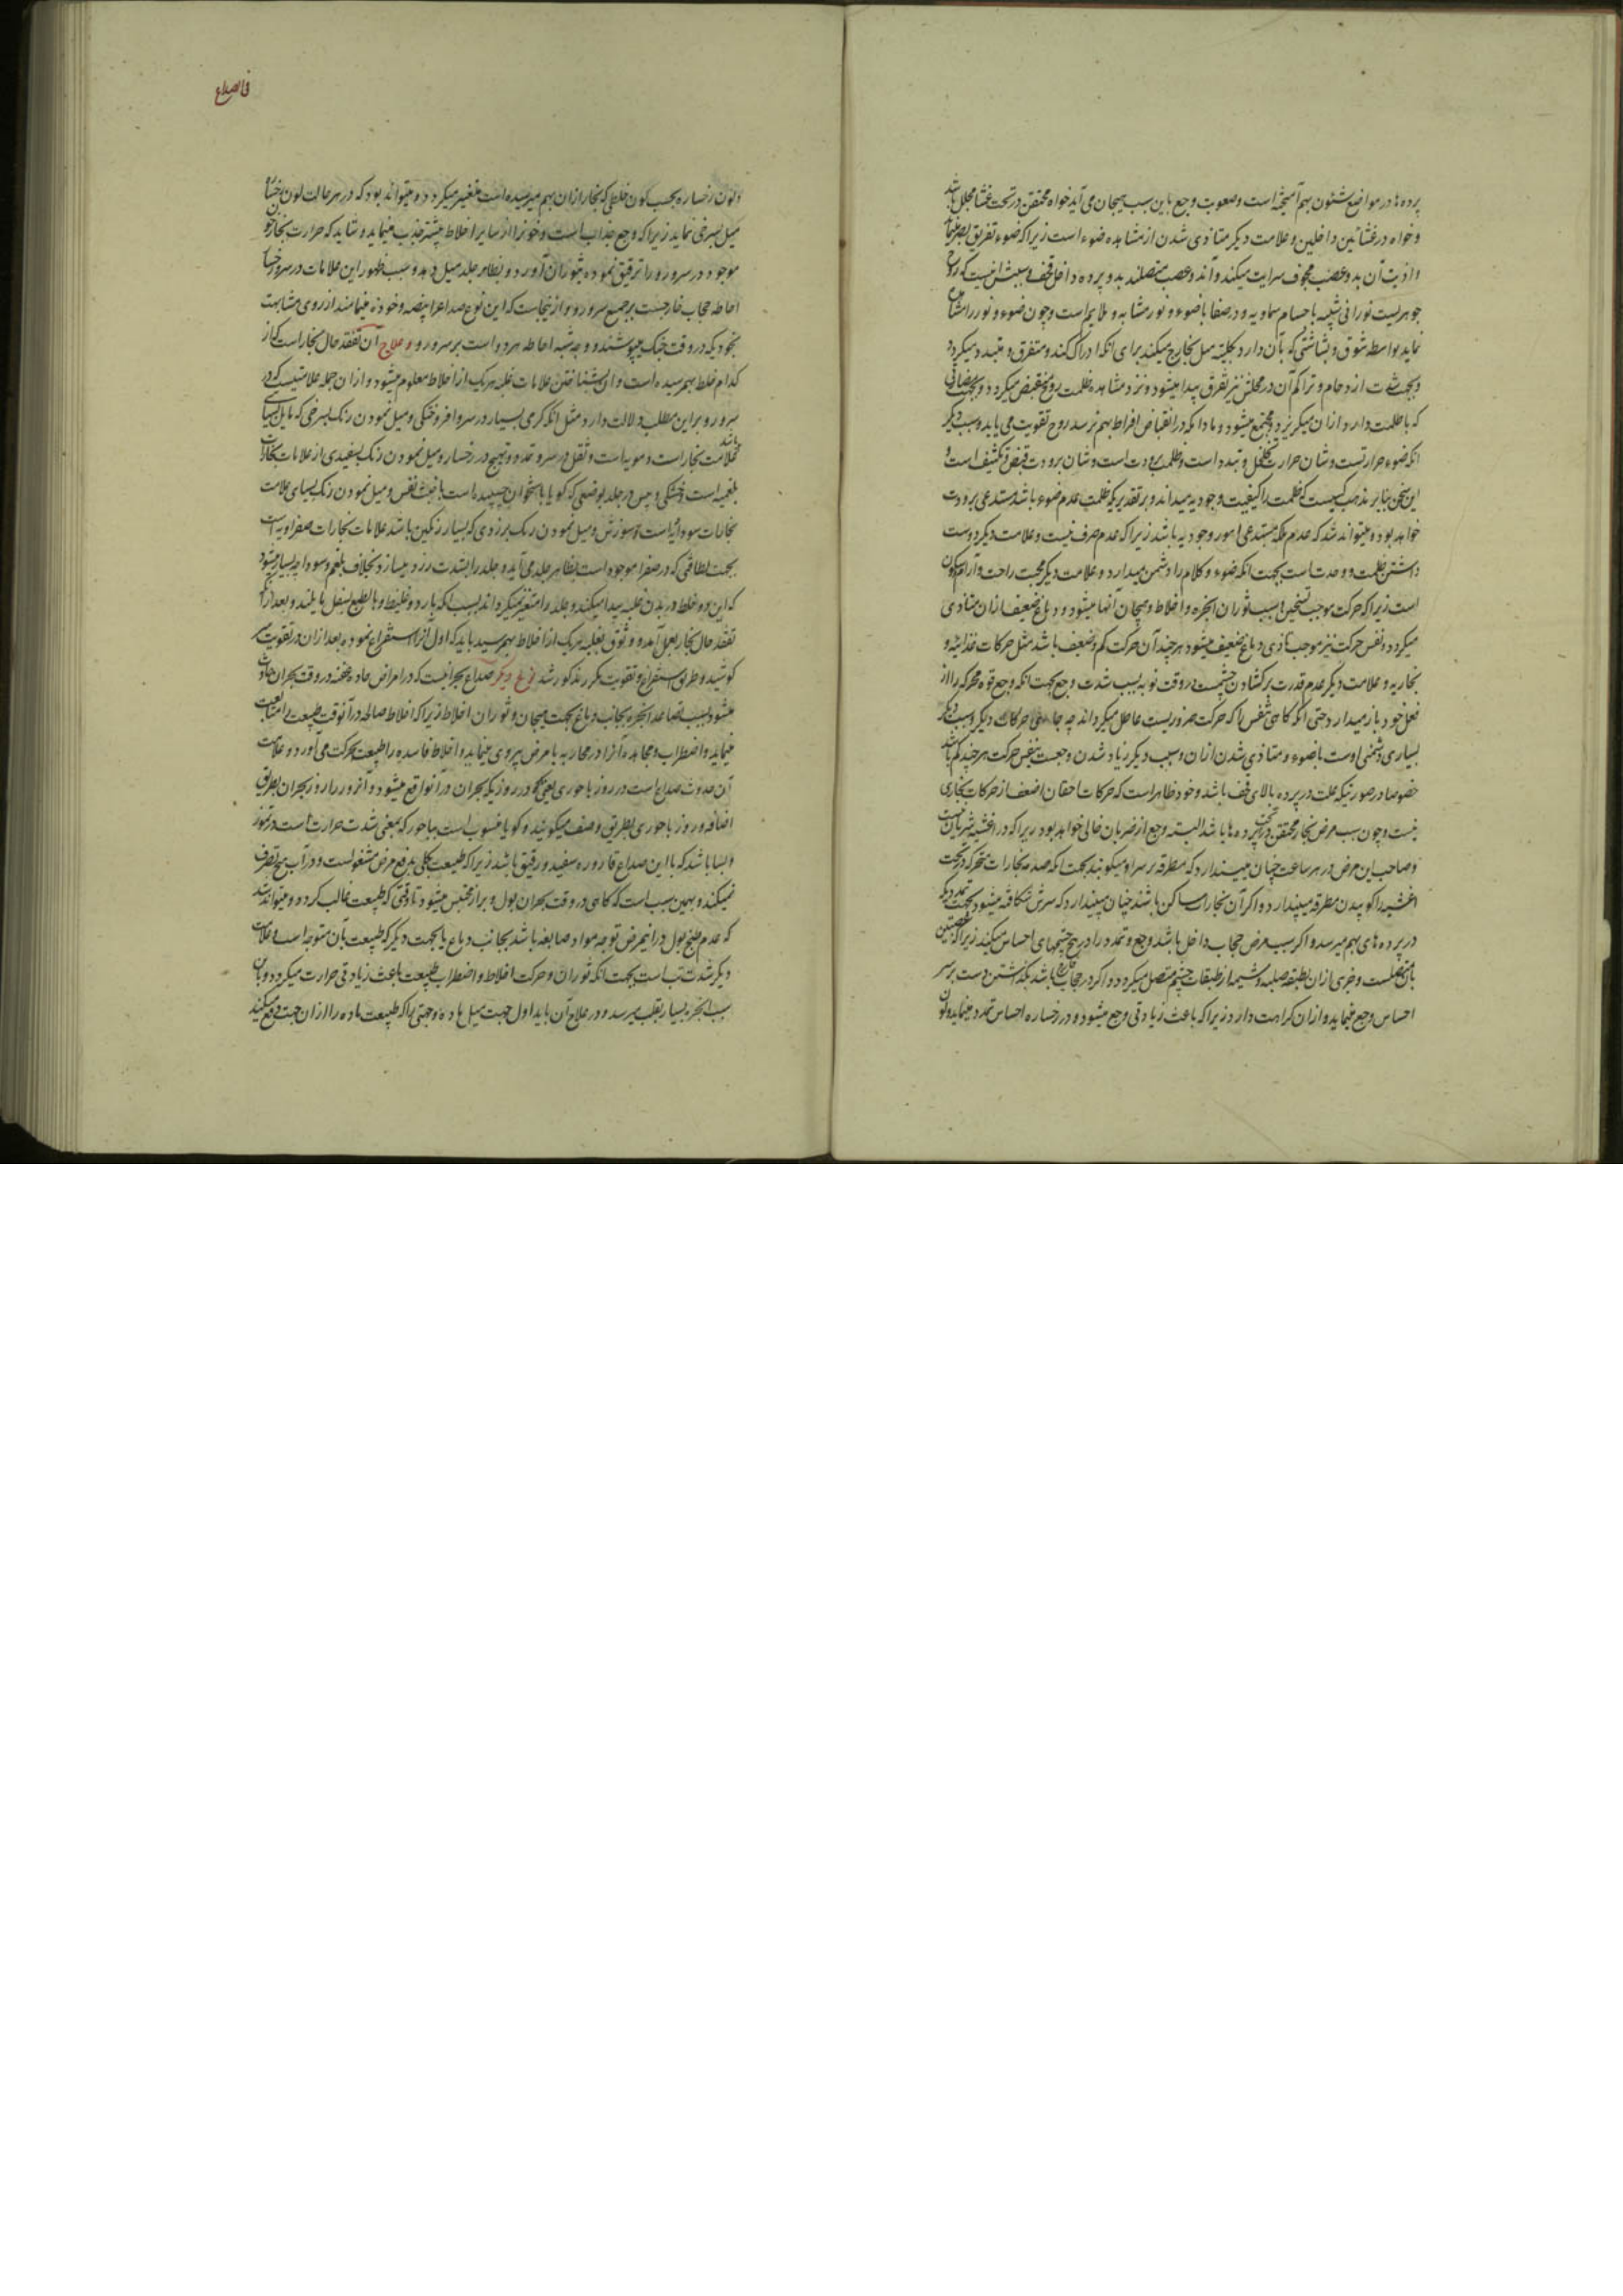 پرده ها در مواضع شئون بهم آمیخته است و صعوبت وجع باین سبب بهیجان می آید خواه محتقن در تحت غشا مجلل باشد
و خواه در غشائین داخلین و علامت دیگر متاذی شدن از مشاهده ضوء است زیرا که ضوء تفریق بصر مینماید
و اذیت آن بدو عصب مجوف سرایت میکند و آن دو عصب متصلند بدو پرده داخل قحف و سببش اینست که روح
جوهریست نورانی شبیه باجسام سماویه و در صفا باضوء و نور مشابه و ملایم است و چون ضوء و نور را مشاهده
نماید بواسطه شوق و بشاشتی که بآن دارد بکلیته میل بخارج میکند برای انکه ادراک کند و متفرق و متبدد میکردد
و بجهت شدت ازدحام و تراکم آن در مجلس نیز تفرق پیدا میشود و نزد مشاهده ظلمت روح منقبض میکردد و بجهت
که باظلمت دارد ازان میکریزد و مجتمع میشود و مادام که در انقباض افراط بهم نرسد روح تقویت می یابد و سبب دیگر
انکه ضوء حار تست و شان حرارت تخلخل و تبدد است و ظلمت برودت است و شان برودت قبض و تکثیف است و
این سخن بنابر مذهب کسیست که ظلمت را کیفیت وجودیه میداند و بر تقدیریکه ظلمت عدم ضوء باشد مستدعی برودت
خواهد بود و میتواند شد که عدم ملکه مستدعی امور وجودیه باشد زیرا که عدم صرف نیست و علامت دیکر دوست
داشتن ظلمت و وحدت است بجهت انکه ضوء و کلام را دشمن میدارد و علامت دیکر محبت راحت و آرام و سکون
است زیرا که حرکت موجب تسخین بسبب ثوران ابخره و اخلاط و هیجان آنها میشود و دماغ ضعیف ازان متاذی
میکردد و نفس حرکت نیز موجب تاذی دماغ ضعیف میشود هرچند آن حرکت کم و ضعیف باشد مثل حرکات غذائیه و
بخاریه و علامت دیکر عدم قدرت بر کشادن چشمست در وقت نوبه بسبب شدت وجع بجهت انکه وجع قوه محرکه را از
فعل خود باز میدارد حتی انکه کاهی تنفس را که حرکت ضروریست عاطل میکرداند چه جای حرکات دیکر و سبب دیکر
بسیاری دشمنی اوست باضوء و متاذی شدن ازان و سبب دیکر زیاد شدن وجعست بنفس حرکت هرچند کم باشد
خصوصا در صورتیکه علت در پرده بالای قحف باشد و خود ظاهر است که حرکات احقان اضعف از حرکات بخاری
نیست و چون سبب مرض بخار محتقن در تحت پرده ها باشد البته وجع از ضربان خالی خواهد بود زیرا که در اغشیه شریان نیست
و صاحب این مرض در هر ساعت چنان میپندارد که مطرقه بر سر او میکوبند بجهت انکه صدمه بخارات متحرکه در تحت
اغشیه را کوبیدن مطرقه میپندارد و اکر آن بخارات ساکن باشند چنان میپندارد که سرش شکافته میشود بجهت تمددیکه
در پرده های بهم میرسد و اکر سبب مرض حجاب داخل باشد وجع و تمدد را در بیخ چشمهای احساس میکند زیرا که عصبتین
بآن متصلست و جزوی ازان بطبقه صلبیه و مشیمه از طبقات چشم متصل میکردد و اکر در حجاب خارج باشد بکذاشتن دست بر سر
احساس وجع مینماید و ازان کراهت دارد زیرا که باعث زیادتی وجع میشود و در رخساره احساس تمدد مینماید و لون
فی الصداع
و لون رخساره بحسب لون خلطی که بخار ازان بهم میرسیده است متغیر میکردد و میتواند بود که در هر حالت لون رخساره
میل بسرخی نماید زیرا که وجع جذاب است و خون را از سایر اخلاط بیشتر جذب مینماید و شاید که حرارت بخار خون
موجود در سر و رو را ترقیق نموده بثوران آورد و بظاهر جلد میل دهد و سبب ظهور این علامات در سر و رخسار
احاطه حجاب خارجست بر جمیع سر و رو و از ینجاست که این نوع صداع را بیضه و خوذه مینامند از روی مشابهت
بخودیکه در وقت جنک میپوشند و وجه شبه احاطه هر دو است بر سر و رو و علاج آن تفقد حال بخار است که از
کدام خلط بهم رسیده است و این بشناختن علامات غلبه هر یک از اخلاط معلوم میشود و ازان جمله علامتیست که در
سر و رو بر این مطلب دلالت دارد مثل انکه کرمی بسیار در سر و افروختکی و میل نمودن رنک بسرخی که مایل بسیاهی باشد
علامت بخارات دمویه است و ثقل در سر و تمدد و تهیج در رخسار و میل نمودن رنک بسفیدی از علامات بخارات
بلغمیه است و خشکی و یبس در جلد بوضعی که کویا باستخوان چسپیده است با خبث نفس و میل نمودن رنک بسیاهی علامت
بخارات سوداویه است و سوزش و میل نمودن رنک بزردی که بسیار رنکین باشد علامات بخارات صفراویه است
بجهت لطافتی که در صفرا موجود است بظاهر جلد می آید و جلد را بشدت زرد میسازد بخلاف بلغم و سودا چه بسیار میشود
که این دو خلط در بدن غلبه پیدا میکند و جلد را متغیر نمیکرداند بسبب انکه بارد و غلیظ و بالطبع بسفل مایلند و بعد ازانکه
تفقد حال بخار بعمل آمد و وثوق بغلبه هر یک از اخلاط بهم رسید باید که اول آنرا استفراغ نموده بعد ازان در تقویت سر
کوشید و طریق استفراغ و تقویت مکرر مذکور شد نوع دیگر صداع بحرانیست که در امراض حاده محضه در وقت بحران حادث
میشود بسبب تصاعد ابخره بجانب دماغ بجهت هیجان و ثوران اخلاط زیرا که اخلاط صالحه در آنوقت طبیعت را متابعت
مینماید و اضطراب و مجاهده آنرا در محاربه با مرض پیروی مینماید و اخلاط فاسده را طبیعت بحرکت می آورد و علامت
آن حدوث صداع است در روز باحوری یعنی در روزیکه بحران در آنواقع میشود و آنروز را روز بحران بطریق
اضافه و روز باحوری بطریق وصف میکویند و کویا منسوب است بباحور که بمعنی شدت حرارت است در تموز
و بسا باشد که با این صداع قاروره سفید و رقیق باشد زیرا که طبیعت بکلی بدفع مرض مشغولست و در آب هیچ تصرف
نمیکند و بهمین سبب است که کاهی در وقت بحران بول و براز محتبس میشود تا وقتی که طبیعت غالب کردد و میتواند شد
که عدم طبخ بول در اینمرض توجه مواد صابغه باشد بجانب دماغ یا بجهت دیگر که طبیعت بآن متوجه است و علامت
دیکر شدت تب است بجهت انکه ثوران و حرکت اخلاط و اضطراب طبیعت باعث زیادتی حرارت میکردد و بآن
سبب ابخره بسیار بقلب میرسد و در علاج آن باید اول جهت میل ماده و جهتی را که طبیعت ماده را ازان جهت دفع میکند